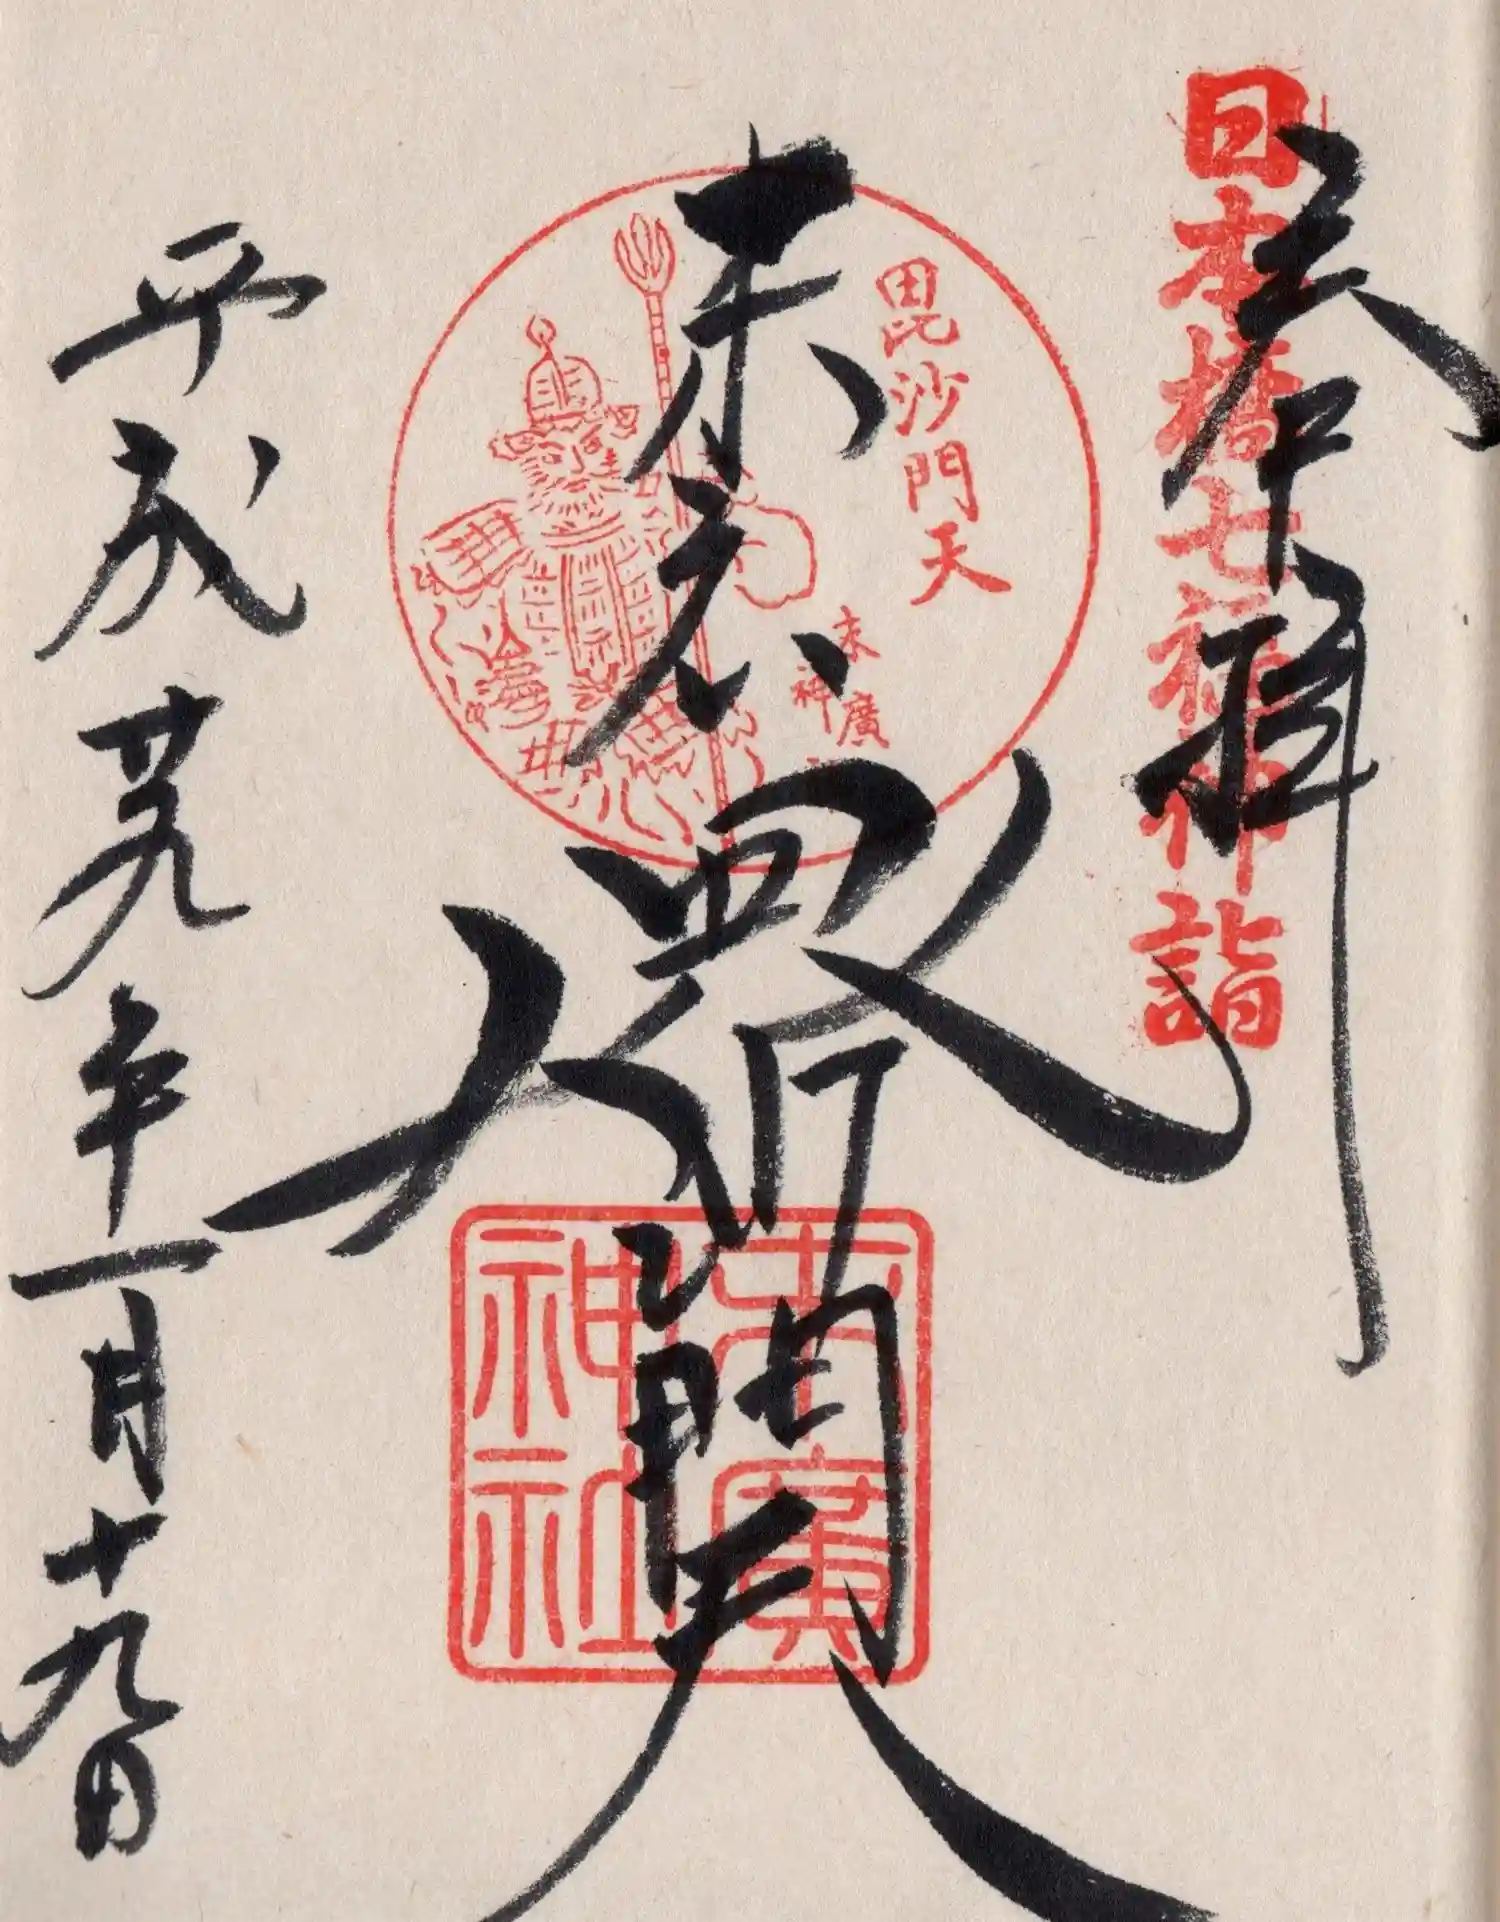 日本橋七福神詣
奉拝
毘沙門天
末廣
神
毘沙門天
末廣
神社
平成廿九年一月十九日